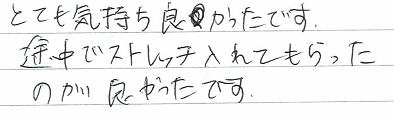 とても気持ち良かったです.
途中でストレッチ入れてもらった
のが良かったです.